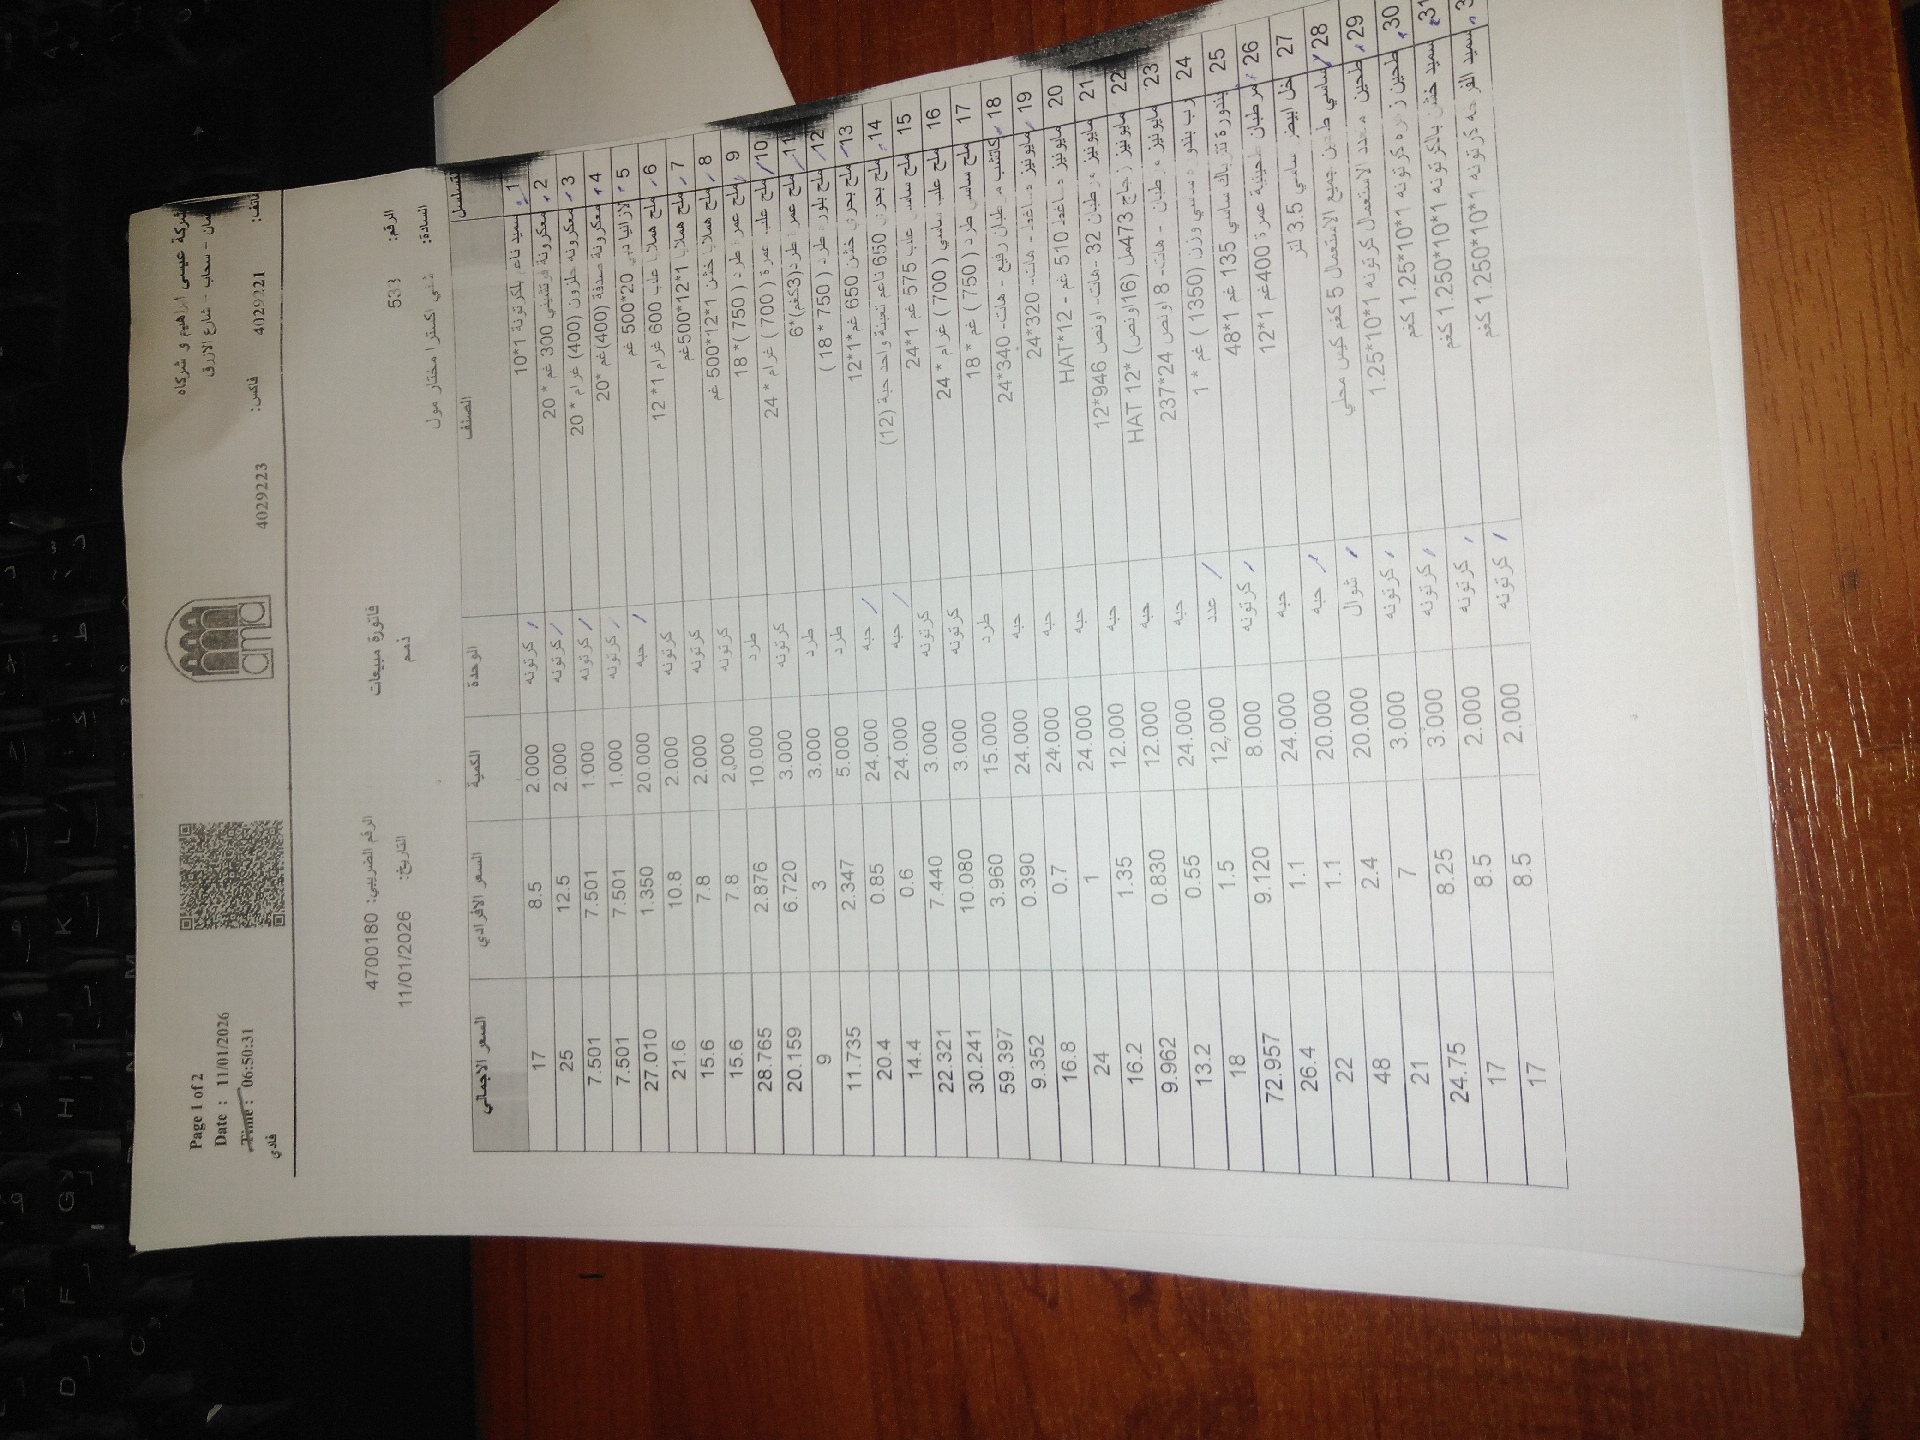 شركة عيسى ابراهيم و شركاه
Page 1 of 2
سحاب - شارع الازرق
Date : 11/01/2026
4029221 فاكس: 4029223
Time : 06:50:31
فادي
ama
فاتورة مبيعات
ذمم
الرقم: 533
الرقم الضريبي: 4700180
السادة: شي اكسترا مختار مول
التاريخ: 11/01/2026
التسلسل الصنف الوحدة الكمية السعر الافرادي السعر الاجمالي
1 سميد ناعم 10*1 كرتونه 2.000 8.5 17
2 معكرونة 300 غم * 20 كرتونه 2.000 12.5 25
3 معكرونه حلزون (400) غرام * 20 كرتونه 1.000 7.501 7.501
4 معكرونة صدفة (400) غم *20 كرتونه 1.000 7.501 7.501
5 لازانيا 20*500 غم حبه 20.000 1.350 27.010
6 ملح علب 600 غرام 1* 12 كرتونه 2.000 10.8 21.6
7 ملح 1*12*500غم كرتونه 2.000 7.8 15.6
8 ملح خشن 1*12*500 غم كرتونه 2.000 7.8 15.6
9 ملح طرد ( 750 )* 18 طرد 10.000 2.876 28.765
10 ملح علب عمرة ( 700 ) غرام * 24 كرتونه 3.000 6.720 20.159
11 ملح طرد (3كغم)*6 طرد 3.000 3 9
12 ملح بلور طرد ( 750 * 18 ) طرد 5.000 2.347 11.735
13 ملح بحري خشن 650 غم *1*12 حبه 24.000 0.85 20.4
14 ملح بحري 650 ناعم تعبئة واحد حبة (12) حبه 24.000 0.6 14.4
15 ملح ساسي علب 575 غم 1*24 كرتونه 3.000 7.440 22.321
16 ملح علب ساسي ( 700 ) غرام * 24 كرتونه 3.000 10.080 30.241
17 ملح ساسي طرد ( 750 ) غم * 18 طرد 15.000 3.960 59.397
18 كاتشب رفيع - هات- 340*24 حبه 24.000 0.390 9.352
19 مايونيز - هات- 320*24 حبه 24.000 0.7 16.8
20 مايونيز 510 غم - HAT*12 حبه 24.000 1 24
21 مايونيز 32 -هات- اونص 946*12 حبه 12.000 1.35 16.2
22 مايونيز زجاج 473مل (16اونص) *12 HAT حبه 12.000 0.830 9.962
23 مايونيز - هات- 8 اونص 24*237 حبه 24.000 0.55 13.2
24 وزن ( 1350 ) غم * 1 عدد 12.000 1.5 18
25 بندورة ساسي 135 غم 1*48 كرتونه 8.000 9.120 72.957
26 عمرة 400غم 1*12 حبه 24.000 1.1 26.4
27 خل ابيض ساسي 3.5 لتر حبه 20.000 1.1 22
28 ساسي جميع الاستعمال 5 كغم كيس محلي شوال 20.000 2.4 48
29 طحين متعدد الاستعمال كرتونه 1*10*1.25 كرتونه 3.000 7 21
30 طحين كرتونه 1*10*1.25 كغم كرتونه 3.000 8.25 24.75
31 سميد خشن بالكرتونه 1*10*1.250 كغم كرتونه 2.000 8.5 17
سميد 1*10*1.250 كغم كرتونه 2.000 8.5 17